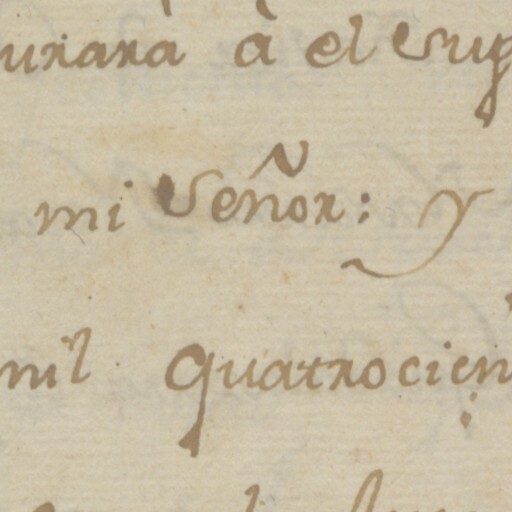 urara à el Sup
mi Señor: y
mil quatrocien